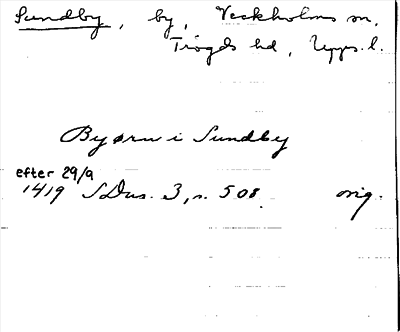 Sundby, by, Veckholms sn,
Trögds hd, Upps. l.
Byørn i Sundby
efter 29/9
1419 SDns. 3, n. 508. orig.